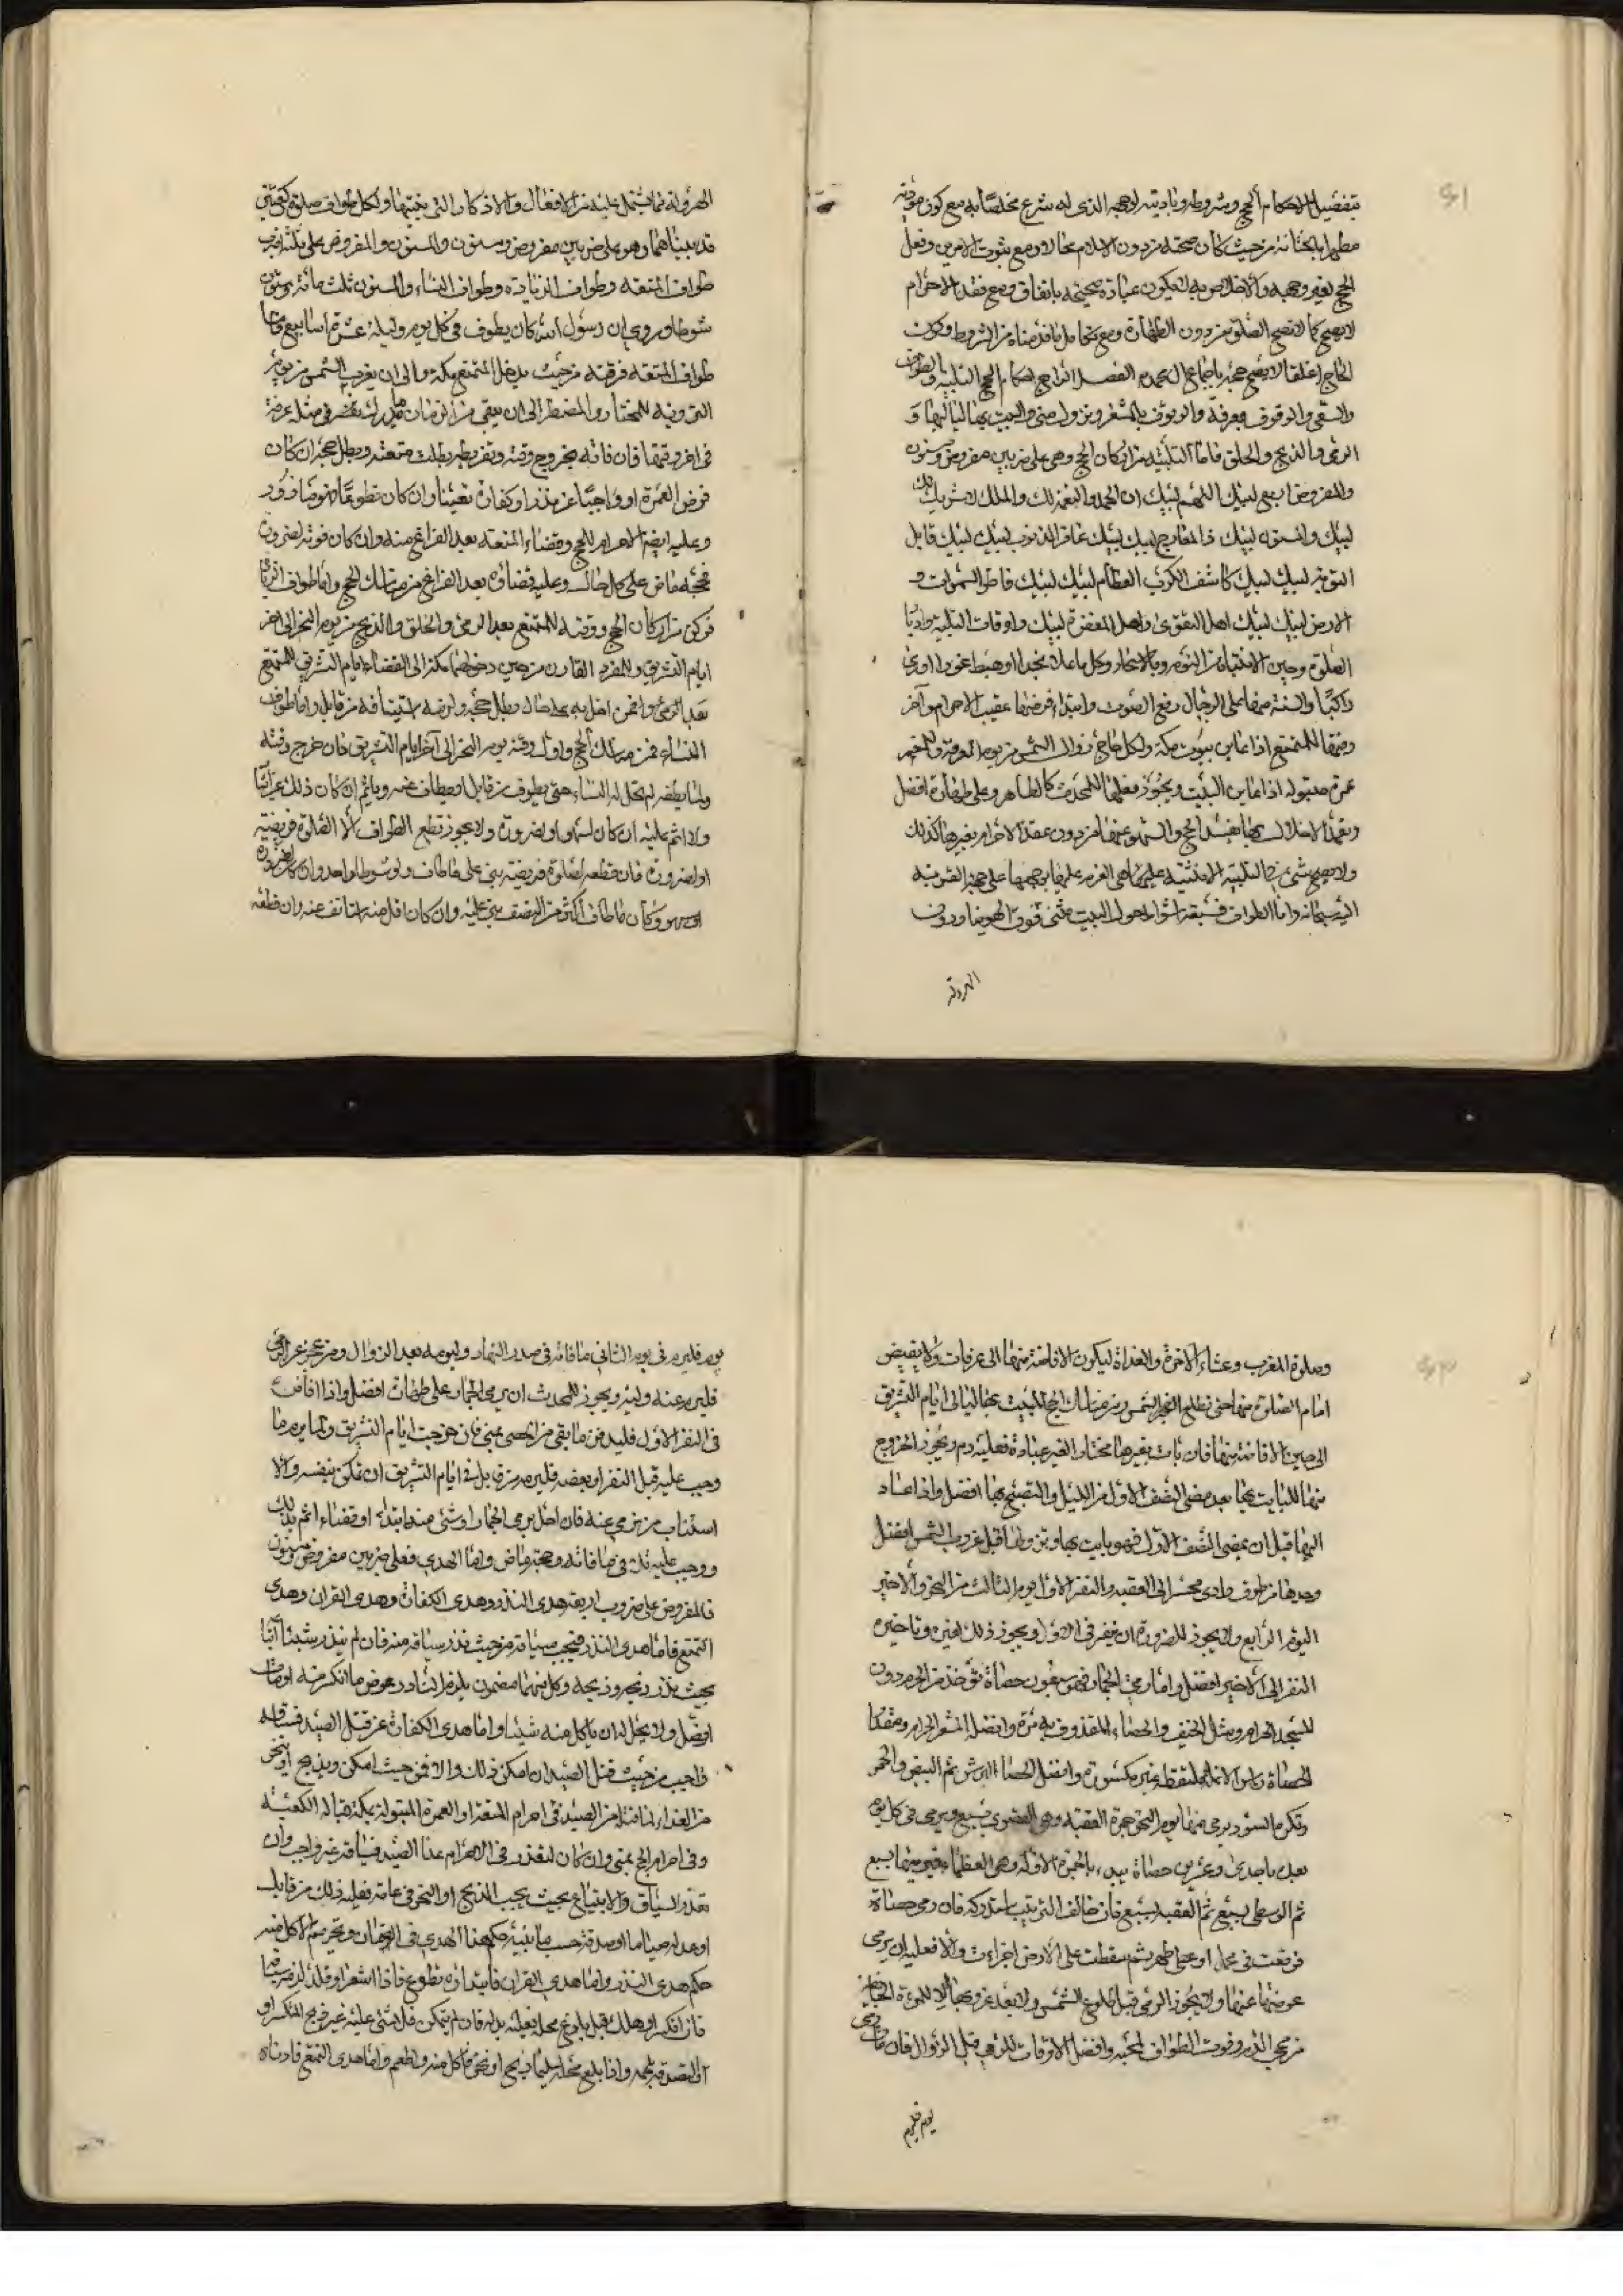 بتفصيل احكام الحج وشروطه وتاديته لوجهه الذى له شرع مخلصا به مع كون مؤديه
الحج لغير وجهه والاخلاص به لا يكون عبادة صحيحة باتفاق ومع فقد الاحرام
لا يصح كما لا تصح الصلوة من دون الطهارة ومع تكامل ما قدمناه من الشروط وكون
الحاج اغلفا لا يصح حجه باجماع ال محمد الفصل الرابع احكام الحج التلبية والطواف
والسعى والوقوف بعرفة والوقوف بالمشعر ونزول منى والمبيت بها لياليها و
الرمى والذبح والحلق فاما التلبية من اركان الحج وهى على ضربين مفروض ومسنون
والمفروض اربع لبيك اللهم لبيك ان الحمد والنعمة لك والملك لا شريك لك
لبيك والمسنون لبيك ذا المعارج لبيك لبيك غافر الذنوب لبيك لبيك قابل
التوبة لبيك لبيك كاشف الكرب العظام لبيك لبيك فاطر السموات و
الارض لبيك لبيك اهل التقوى واهل المغفرة لبيك واوقات التلبية ادبار
الصلوة وحين الانتباه من النوم وبالاسحار وكل ما علا نجدا او هبط غورا او راى
راكبا والسنة فيها على الرجال رفع الصوت وابتداء فرضها عقيب الاحرام وآخر
وقتها للمتمتع اذا عاين بيوت مكة ولكل حاج زوال الشمس من يوم العرفة وللمعتمر
عمرة مبتولة اذا عاين البيت ويجوز فعلها للمحدث كالطاهر وعلى طهارة افضل
وتعمد الاخلال بها يفسد الحج والسهو عنها من دون عقد الاحرام بغيرها كذلك
اليه سبحانه واما الطواف فسبعة اشواط حول البيت مشى فوق الهوينا ودون
الهرولة
الهرولة بما يشتمل عليه من الافعال والاذكار التى يجتبيها ولكل طواف صلوة ركعتين
قد بيناهما وهو على ضربين مفروض ومسنون والمفروض على ثلثة اضرب
طواف المتعة وطواف الزيادة وطواف النساء والمسنون ثلث مائة وستون
شوطا وروى ان رسول الله كان يطوف فى كل يوم وليلة عشرة اسابيع واما
طواف المتعة فوقته من حيث يدخل المتمتع مكة والى ان يغرب الشمس من يوم
التروية للمختار وللمضطر الى ان يبقى من الزمان ما يدرك بمضيه فى مثله عرفة
فى اخر وقتها فان فاته بخروج وقته وتفريطه بطلت متعته وبطل حجه ان كان
فرض العمرة او واجبا عن نذر او كفارة تعينا وان كان تطوعا فهو مازور
وعليه ايضا الاحرام للحج وقضاء المتعة بعد الفراغ منه وان كان فوته لضرورة
فحجه ماض على كل حال وعليه قضاؤه بعد الفراغ من مناسك الحج واما طواف الزيارة
فركن من اركان الحج ووقته للمتمتع بعد الرمى والحلق والذبح من يوم النحر الى اخر
ايام التشريق وللمفرد القارن من حين دخولهما مكة الى انقضاء ايام التشريق للمتمتع
بعد الرمى وان فمن اخل به على حال بطل حجه ولزمه استينافه من قابل واما طواف
النساء فمن مناسك الحج واول وقته يوم النحر الى آخر ايام التشريق فان خرج وقته
ولما يطفه لم تحل له النساء حتى يطوف من قابل او يطاف عنه وياثم ان كان ذلك عن ايثار
ولا اثم عليه ان كان لسهو او لضرورة ولا يجوز قطع الطواف الا لصلوة فريضة
او لضرورة فان قطعه لصلوة فريضة بنى على ما طاف ولو شوطا واحدا وان كان لضرورة
او سهو وكان ما طاف اكثر من النصف بنى عليه وان كان اقل منه استانف عنه وان قطعه
وصلوة المغرب وعشاء الاخرة والغداة ليكون الافاضة منها الى عرفات ولا يفيض
امام الصلوة منها حتى تطلع الشمس ومن مناسك الحج المبيت بها ليالى ايام التشريق
الى حين الافاضة منها فان بات بغيرها مختارا لغير عبادة فعليه دم ويجوز الخروج
منها للبايت بها بعد مضى النصف الاول من الليل والتصبح بها افضل واذا عاد
اليها قبل ان يمضى النصف الاول فهو بايت بها ونزولها قبل غروب الشمس افضل
وحدها من طرف وادى محسر الى العقبة والنفر الاول يوم الثالث من النحر والاخير
اليوم الرابع ولا يجوز للصرورة ان ينفر فى الاول ويجوز ذلك لغيره وتاخير
النفر الى الاخير افضل واما رمى الجمار فهو سبعون حصاة تؤخذ من الحرم دون
المسجد الحرام ومسجد الخيف والحصاء المقذوف به مرة وافضله المشعر الحرام ومقدار
الحصاة راس الانملة ملتقطة غير مكسورة وافضل الحصا البرش ثم البيض والحمر
وتكره السود يرمى منها يوم النحر جمرة العقبة وهى القصوى بسبع ويرمى فى كل يوم
بعده باحدى وعشرين حصاة يبدء بالجمرة الاولة وهى العظماء فيرميها بسبع
ثم الوسطى بسبع ثم العقبة بسبع فان خالف الترتيب استدركه فان رمى حصاة
فوقعت فى محمل او على ظهر ثم سقطت على الارض اجزءت والا فعليه ان يرمى
عوضها عنها ولا يجوز الرمى قبل طلوع الشمس ولا بعد غروبها الا للمرءة الخائفة
من مجى الدم وفوت الطواف لمجيئه وافضل الاوقات للرمى قبل الزوال فان فات رمى
يوم فليرم
يوم فليرم فى يوم الثانى ما فاته فى صدر النهار وليومه بعد الزوال ومن عجز عن الرمى
فليرم عنه وليه ويجوز للمحدث ان يرمى الجمار وعلى طهارة افضل واذا افاض
فى النفر الاول فليدفن ما بقى من الحصى بمنى فان خرجت ايام التشريق ولما يرم ما
وجب عليه قبل النفر او بعضه فليرمه من قابل فى ايام التشريق ان تمكن بنفسه والا
استناب من يرمى عنه فان اخل برمى الجمار او شئ منه ابتداء او قضاء اثم بذلك
ووجب عليه تلافى ما فاته وحجه ماض واما الهدى فعلى ضربين مفروض ومسنون
فالمفروض على ضروب اربعة هدى النذر وهدى الكفارة وهدى القران وهدى
التمتع فاما هدى النذر فيجب سياقه من حيث نذر سياقه منه فان لم ينذر شيئا
بحيث نذر نحره وذبحه وكل منهما مضمون يلزم الناذر عوض ما انكسر منه او مات
او ضل ولا يحل له ان ياكل منه شيئا واما هدى الكفارة عن قتل الصيد فسياقه
واجب من حيث قتل الصيد ان امكن ذلك والا فمن حيث امكن ويذبح او ينحر
من الفداء لما قتله من الصيد فى احرام المتعة او العمرة المبتولة بمكة قبالة الكعبة
وفى احرام الحج بمنى وان كان لتعذر فى الاحرام عدا الصيد فسياقه غير واجب وان
تعذر السياق والابتياع بحيث يجب الذبح او النحر فى عامه فعليه ذلك من قابل
او عدله صياما او صدقة حسب ما نبينه وحكم هذا الهدى فى الضمان وتحريم الاكل منه
حكم هدى النذر واما هدى القران فابتداؤه تطوع فاذا اشعر او قلد لزم سياقه
فان انكسر او هلك قبل بلوغ محله فعليه بدله فان لم يتمكن فلا شئ عليه غير ذبح المنكسر او
الصدقة بلحمه واذا بلغ محله سليما ذبح او نحر واكل منه واطعم واما هدى التمتع فادناه